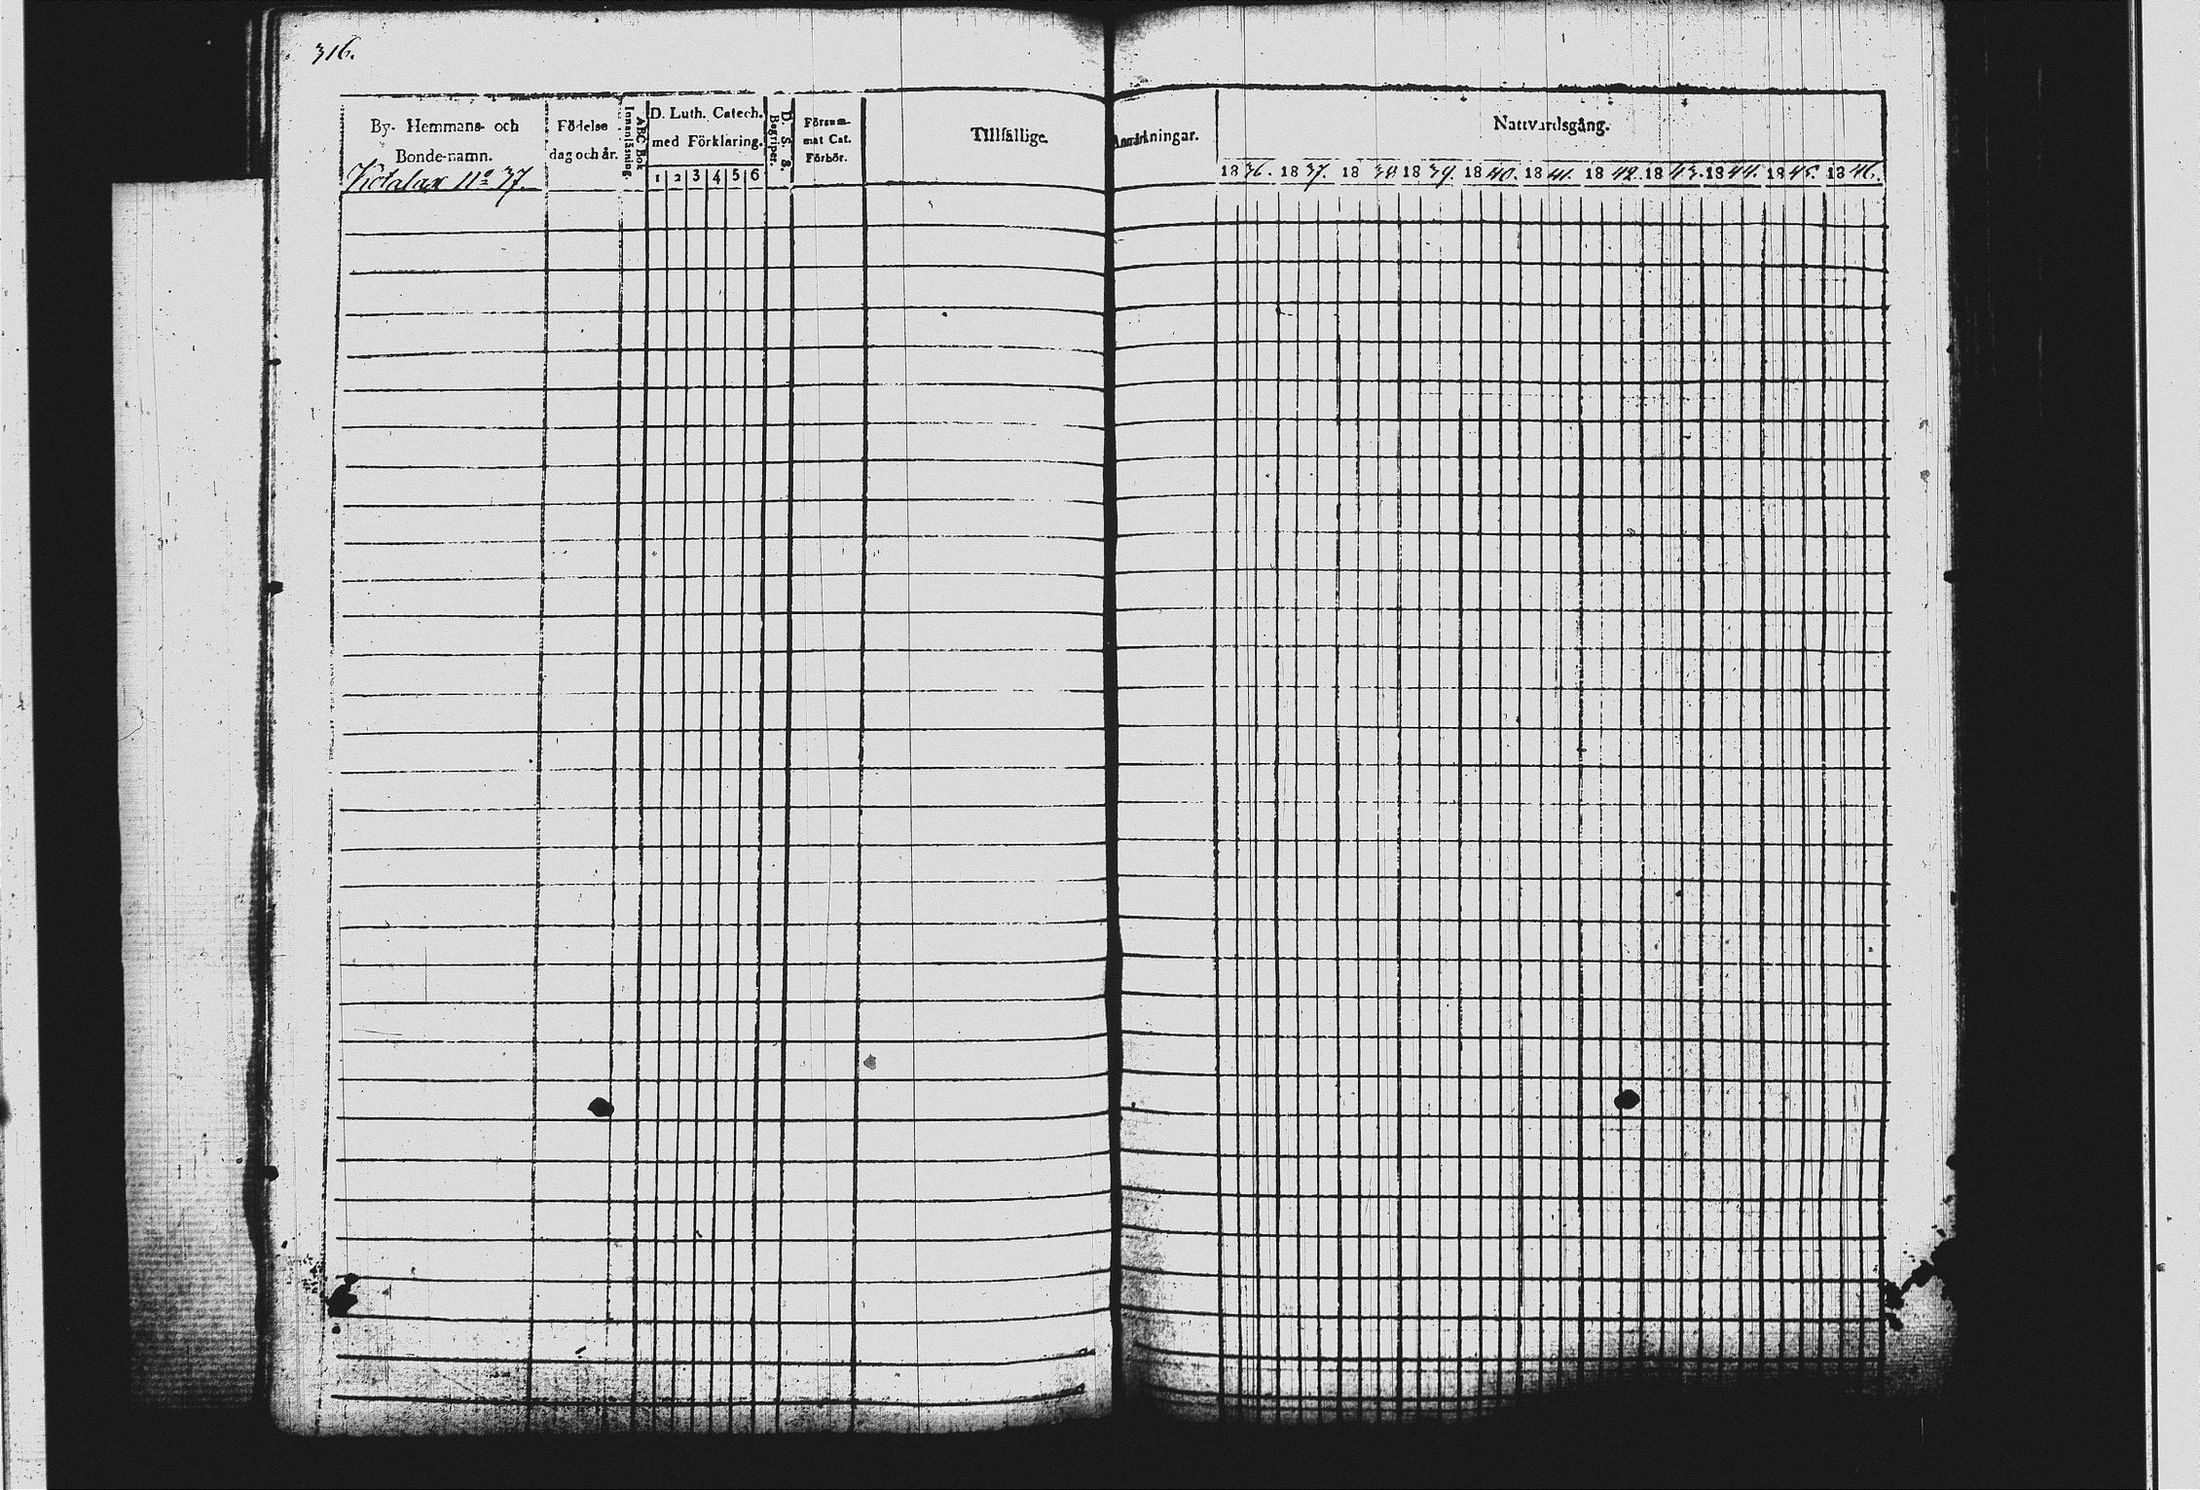 316.
By- Hemmans- och
Bonde-namn.
Födelse
dag och år.
ABC Bok
Innanläsning.
D. Luth. Catech.
med Förklaring.
1 2 3 4 5 6
D. S. S.
Begriper.
Försum-
mat Cat.
Förhör.
Tillfällige
Anmärkningar.
Nattvardsgång.
No 37.
1836. 1837. 1838 1839. 1840. 1841. 1842. 1843. 1844. 1845. 1846.